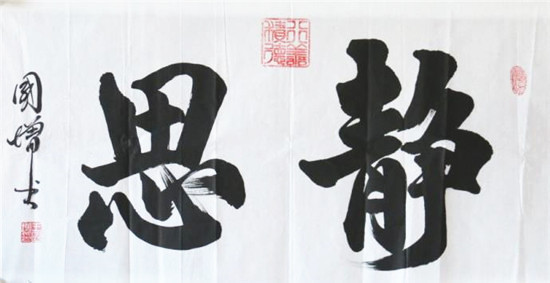 静思
國增书